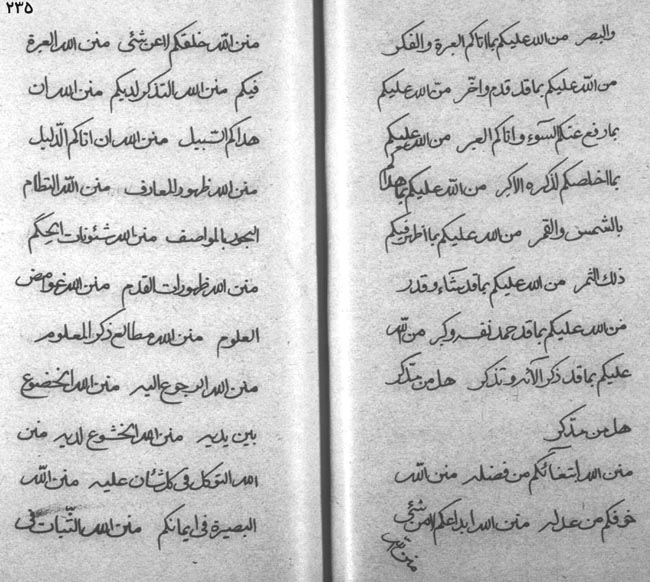 ۲۳۵
والبصر من الله عليكم بما اتاكم العبرة والفكر
من الله عليكم بما قد قدم واخّر من الله عليكم
بما رفع عنكم السوء واتاكم العبر من الله عليكم
بما اخلصكم لذكره الاكبر من الله عليكم بما هداكم
بالشمس والقمر من الله عليكم بما اظهر فيكم
ذلك الثمر من الله عليكم بما قد شاء وقدر
من الله عليكم بما قد حمد نفسه وكبر من الله
عليكم بما قد ذكر الآئه وتذكر هل من متذكر
هل من متذكر
منن الله ابتغائكم من فضله منن الله
خوفكم من عدله منن الله ابداعكم لامن شئی
منن الله
منن الله خلقكم لاعن شئی منن الله العبرة
فيكم منن الله التذكر لديكم منن الله ان
هداكم السبيل منن الله ان اتاكم الدّليل
منن الله ظهور المعارف منن الله النظام
الجود بالمواصف منن الله شئونات الحكم
منن الله ظهورات القدم منن الله غوامض
العلوم منن الله مطالع ذكر المعلوم
منن الله الرجوع اليه منن الله الخضوع
بين يديه منن الله الخشوع لديه منن
الله التوكل فی كل شان عليه منن الله
البصيرة فی ايمانكم منن الله الثّبات فی